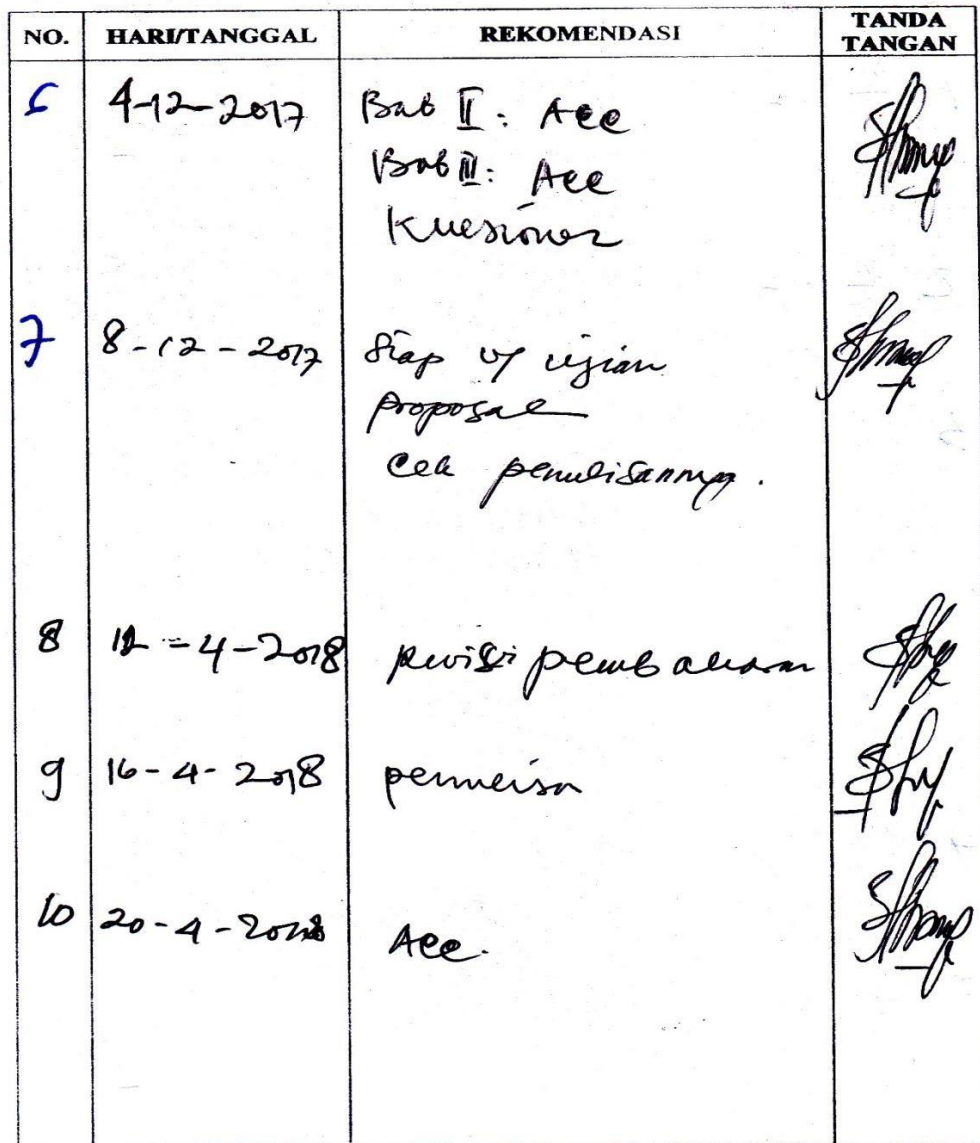 NO. HARI/TANGGAL REKOMENDASI TANDA TANGAN
6 4-12-2017 Bab II: Acc
Bab III: Acc
Kuesioner
7 8-12-2017 Siap u/ ujian
proposal
Cek penulisannya.
8 12-4-2018 Revisi pembahasan
9 16-4-2018
10 20-4-2018 Acc.